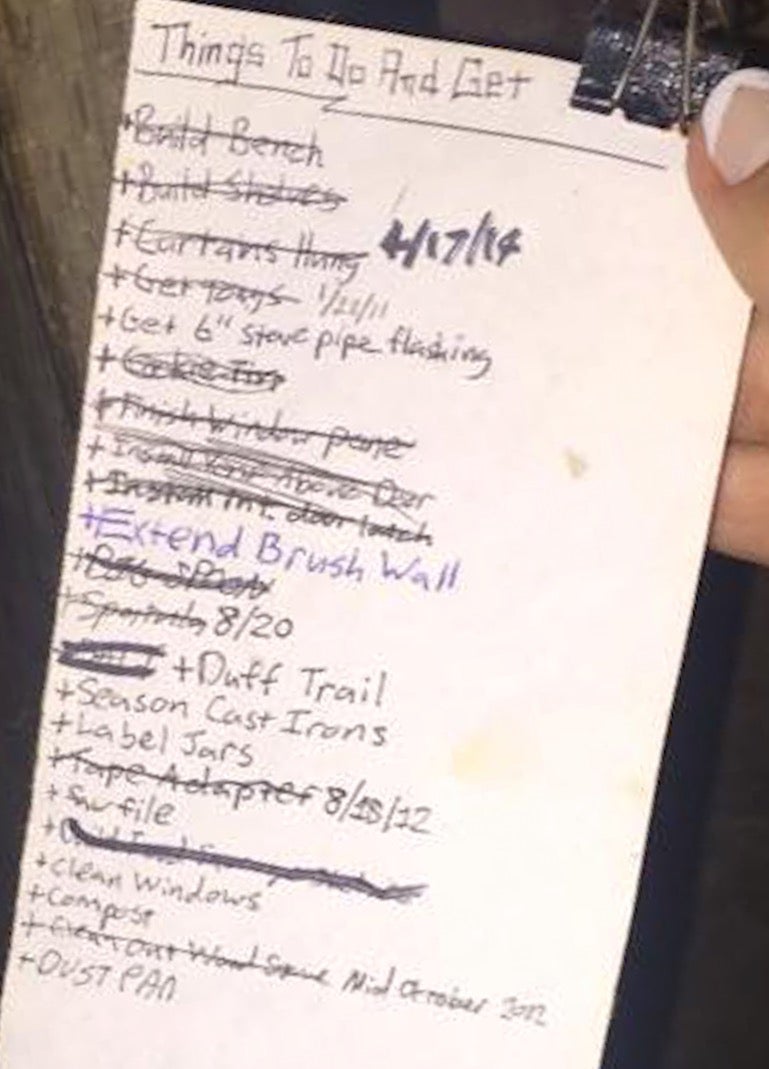 Things To Do And Get
+Build Bench
+Build Shelves
+Curtains Hung 4/17/14
+Get Tongs 1/21/11
+Get 6" stove pipe flashing
+Cookie Tins
+Finish Window pane
+Install Above Door
+Install Int. door latch
+Extend Brush Wall
+
+ 8/20
+Duff Trail
+Season Cast Irons
+Label Jars
+Tape Adapter 8/18/12
+Saw file
+
+Clean Windows
+Compost
+Clean Out Wood Stove Mid October 2012
+DUST PAN